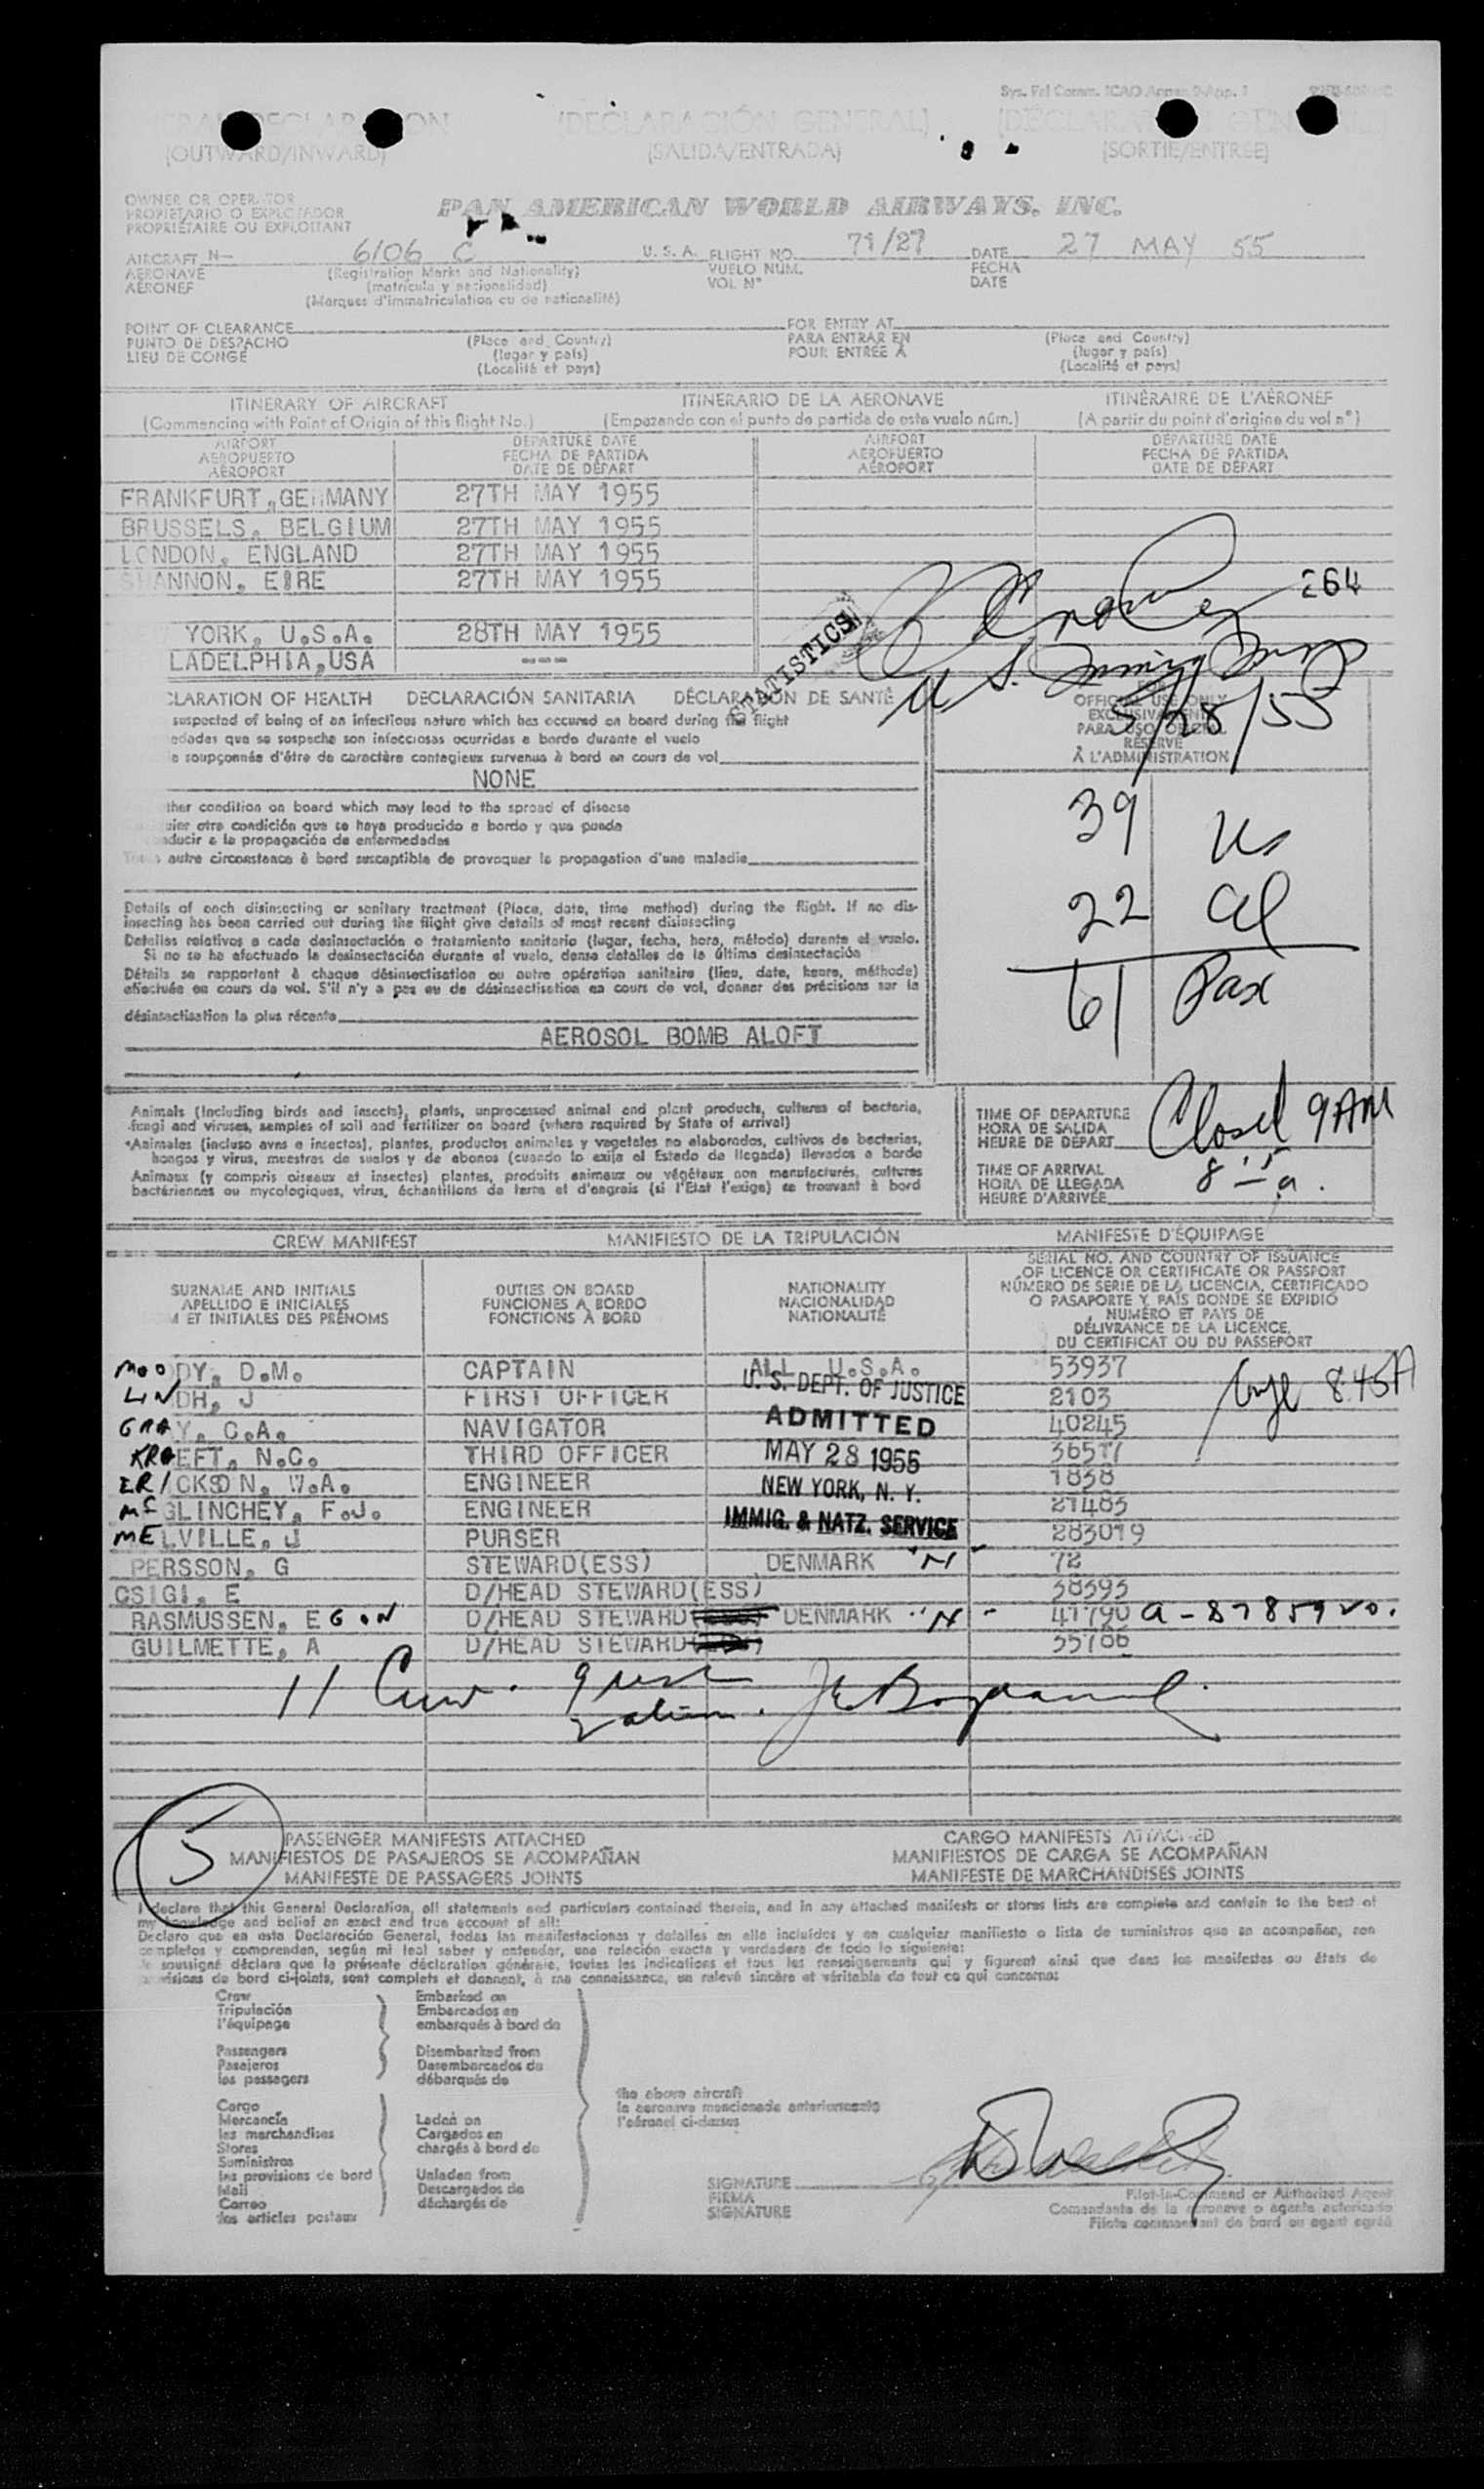 Sys. Fal Comm. ICAO Annex 9-App. 1
(OUTWARD/INWARD) (SALIDA/ENTRADA) (SORTIE/ENTREE)
(DECLARACIÓN GENERAL)
OWNER OR OPERATOR
PROPIETARIO O EXPLOTADOR
PROPRIÉTAIRE OU EXPLOITANT
PAN AMERICAN WORLD AIRWAYS, INC.
AIRCRAFT N- 6106 C U. S. A. FLIGHT NO. 71/27 DATE 27 MAY 55
AERONAVE (Registration Marks and Nationality) VUELO NUM. FECHA
AÉRONEF (matrícula y nacionalidad) VOL Nº DATE
(Marques d'immatriculation ou de nationalité)
POINT OF CLEARANCE FOR ENTRY AT
PUNTO DE DESPACHO (Place and Country) PARA ENTRAR EN (Place and Country)
LIEU DE CONGÉ (lugar y país) POUR ENTRÉE À (lugar y país)
(Localité et pays) (Localité et pays)
ITINERARY OF AIRCRAFT ITINERARIO DE LA AERONAVE ITINÉRAIRE DE L'AÉRONEF
(Commencing with Point of Origin of this flight No.) (Empezando con el punto de partida de este vuelo núm.) (A partir du point d'origine du vol nº)
AIRPORT DEPARTURE DATE AIRPORT DEPARTURE DATE
AEROPUERTO FECHA DE PARTIDA AEROPUERTO FECHA DE PARTIDA
AÉROPORT DATE DE DÉPART AÉROPORT DATE DE DÉPART
FRANKFURT, GERMANY 27TH MAY 1955
BRUSSELS, BELGIUM 27TH MAY 1955
LONDON, ENGLAND 27TH MAY 1955
SHANNON, EIRE 27TH MAY 1955
264
YORK, U.S.A. 28TH MAY 1955
LADELPHIA, USA ---
STATISTICS
5/28/55
CLARATION OF HEALTH DECLARACIÓN SANITARIA DÉCLARATION DE SANTÉ
suspected of being of an infectious nature which has occured on board during the flight
edades que se sospeche son infecciosas ocurridas a bordo durante el vuelo
soupçonnée d'être de caractère contagieux survenus à bord en cours de vol
NONE
OFFICIAL USE ONLY
EXCLUSIVAMENTE
PARA USO OFICIAL
RÉSERVÉ
À L'ADMINISTRATION
ther condition on board which may lead to the spread of disease
otra condición que se haya producido a bordo y que pueda
ducir a la propagación de enfermedades
autre circonstance à bord susceptible de provoquer la propagation d'une maladie
39 US
22 al
61 Pax
Details of each disinsecting or sanitary treatment (Place, date, time method) during the flight. If no dis-
insecting has been carried out during the flight give details of most recent disinsecting
Detalles relativos a cada desinsectación o tratamiento sanitario (lugar, fecha, hora, método) durante el vuelo.
Si no se ha efectuado la desinsectación durante el vuelo, dense detalles de la última desinsectación
Détails se rapportant à chaque désinsectisation ou autre opération sanitaire (lieu, date, heure, méthode)
effectuée en cours de vol. S'il n'y a pas eu de désinsectisation en cours de vol, donner des précisions sur la
désinsectisation la plus récente
AEROSOL BOMB ALOFT
Animals (Including birds and insects), plants, unprocessed animal and plant products, cultures of bacteria,
fungi and viruses, samples of soil and fertilizer on board (where required by State of arrival)
Animales (incluso aves e insectos), plantes, productos animales y vegetales no elaborados, cultivos de bacterias,
hongos y virus, muestras de suelos y de abonos (cuando lo exija el Estado de llegada) llevados a bordo
Animaux (y compris oiseaux et insectes) plantes, produits animaux ou végétaux non manufacturés, cultures
bactériennes ou mycologiques, virus, échantillons de terre et d'engrais (si l'Etat l'exige) se trouvant à bord
TIME OF DEPARTURE
HORA DE SALIDA
HEURE DE DÉPART
Closed 9AM
TIME OF ARRIVAL
HORA DE LLEGADA
HEURE D'ARRIVÉE
CREW MANIFEST MANIFIESTO DE LA TRIPULACIÓN MANIFESTE D'ÉQUIPAGE
SURNAME AND INITIALS
APELLIDO E INICIALES
ET INITIALES DES PRÉNOMS
DUTIES ON BOARD
FUNCIONES A BORDO
FONCTIONS À BORD
NATIONALITY
NACIONALIDAD
NATIONALITÉ
SERIAL NO. AND COUNTRY OF ISSUANCE
OF LICENCE OR CERTIFICATE OR PASSPORT
NÚMERO DE SERIE DE LA LICENCIA, CERTIFICADO
O PASAPORTE Y PAÍS DONDE SE EXPIDIÓ
NUMÉRO ET PAYS DE
DÉLIVRANCE DE LA LICENCE,
DU CERTIFICAT OU DU PASSEPORT
MOODY, D.M. CAPTAIN ALL U.S.A. 53937
LINDH, J FIRST OFFICER 2103 8.45A
GRAY, C.A. NAVIGATOR 40245
KREFT, N.C. THIRD OFFICER 36577
ERICKSON, W.A. ENGINEER 1838
McGLINCHEY, F.J. ENGINEER 27485
MELVILLE, J PURSER 283019
PERSSON, G STEWARD(ESS) DENMARK "N" 72
CSIGI, E D/HEAD STEWARD(ESS) 38393
RASMUSSEN, EGON D/HEAD STEWARD DENMARK "N" 47790
GUILMETTE, A D/HEAD STEWARD 35786
U. S. DEPT. OF JUSTICE
ADMITTED
MAY 28 1955
NEW YORK, N. Y.
IMMIG. & NATZ. SERVICE
11 Crew.
5
PASSENGER MANIFESTS ATTACHED CARGO MANIFESTS ATTACHED
MANIFIESTOS DE PASAJEROS SE ACOMPAÑAN MANIFIESTOS DE CARGA SE ACOMPAÑAN
MANIFESTE DE PASSAGERS JOINTS MANIFESTE DE MARCHANDISES JOINTS
I declare that this General Declaration, all statements and particulars contained therein, and in any attached manifests or stores lists are complete and contain to the best of
my knowledge and belief an exact and true account of all:
Declaro que en esta Declaración General, todas las manifestaciones y detalles en ella incluídos y en cualquier manifiesto o lista de suministros que se acompañen, son
completos y comprenden, según mi leal saber y entender, una relación exacta y verdadera de todo lo siguiente:
soussigné déclare que la présente déclaration générale, toutes les indications et tous les renseignements qui y figurent ainsi que dans les manifestes ou états de
provisions de bord ci-joints, sont complets et donnent, à ma connaissance, un relevé sincère et véritable de tout ce qui concerne:
Crew Embarked on
Tripulación Embarcados en
l'équipage embarqués à bord de
Passengers Disembarked from
Pasajeros Desembarcados de
les passagers débarqués de
Cargo
Mercancía Laden on
les marchandises Cargados en
Stores chargés à bord de
Suministros
les provisions de bord Unladen from
Mail Descargados de
Correo déchargés de
les articles postaux
the above aircraft
la aeronave mencionada anteriormente
l'aéronef ci-dessus
SIGNATURE
FIRMA
SIGNATURE
Pilot-in-Command or Authorized Agent
Comandante de la aeronave o agente autorizado
Pilote commandant de bord ou agent agréé